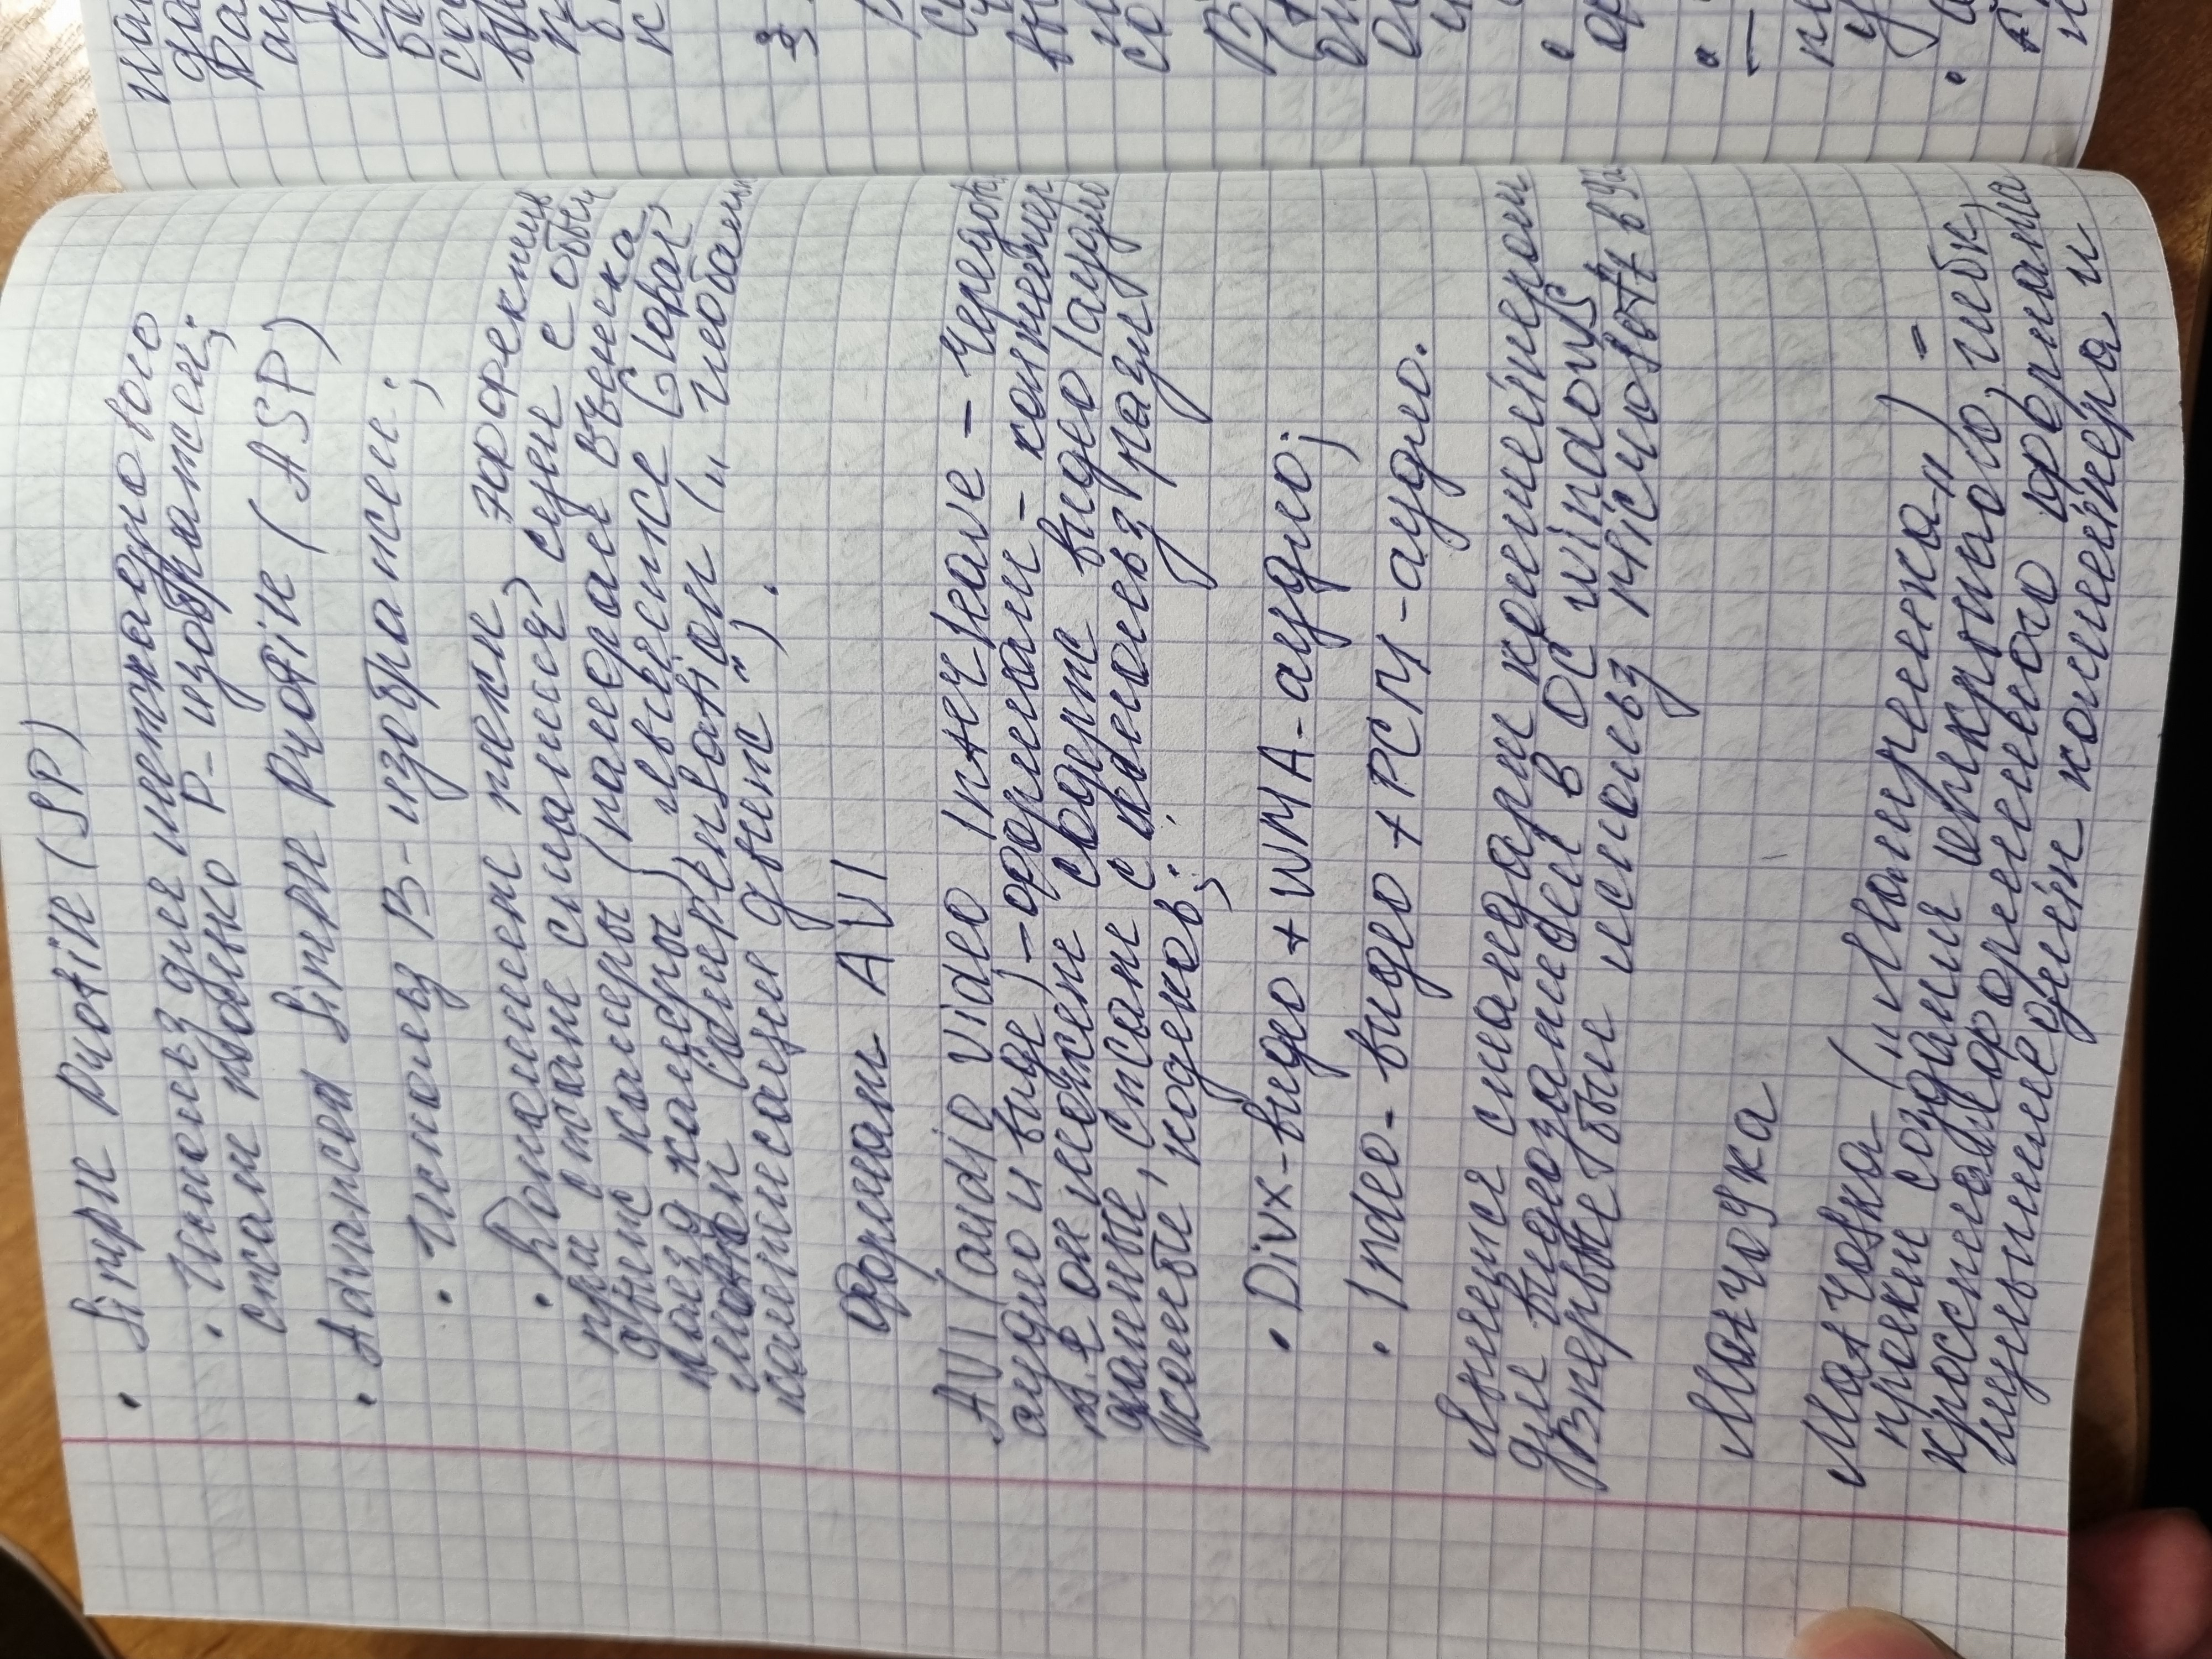 • Simple Profile (SP)
• Использ для межкадрового
сжат только P-изображен;
• Advanced Simple Profile (ASP)
• Использ B-изображен;
• Дополнит техн, эффектив
при сжат сцен с объ
движ камеры (панорам съемка,
наезд камеры), является Global
Motion Compensation („глобальн
компнсации движ").
Формат AVI
AVI (audio video Interleave – Чередов.
аудио и виде) – формат – контейнер
т.е он может содерж видео/аудио
данные, сжат с использ разл
комби кодеков;
• Divx-видео + WMA-аудио;
• Indeo-видео + PCM-аудио.
Является стандарт контейнером
для видеозаписей в ОС Windows,
Впервые был использ Microsoft в 92
Matroska
Matroska („Матрешка„) –
проект создания открытого, гибк,
кроссплатформенного формата
мультимедийн контейнера и